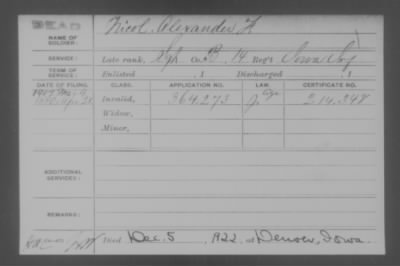 DEAD
NAME OF SOLDIER: Nicol, Alexander F.
SERVICE: Late rank, Co. B, 14 Reg't Iowa Inf
TERM OF SERVICE: Enlisted , 1 Discharged , 1
DATE OF FILING. CLASS. APPLICATION NO. LAW. CERTIFICATE NO.
Invalid, 364.273 214.348
Widow,
Minor,
ADDITIONAL SERVICES:
REMARKS:
Died Dec. 5, 1922, at Denver, Iowa.